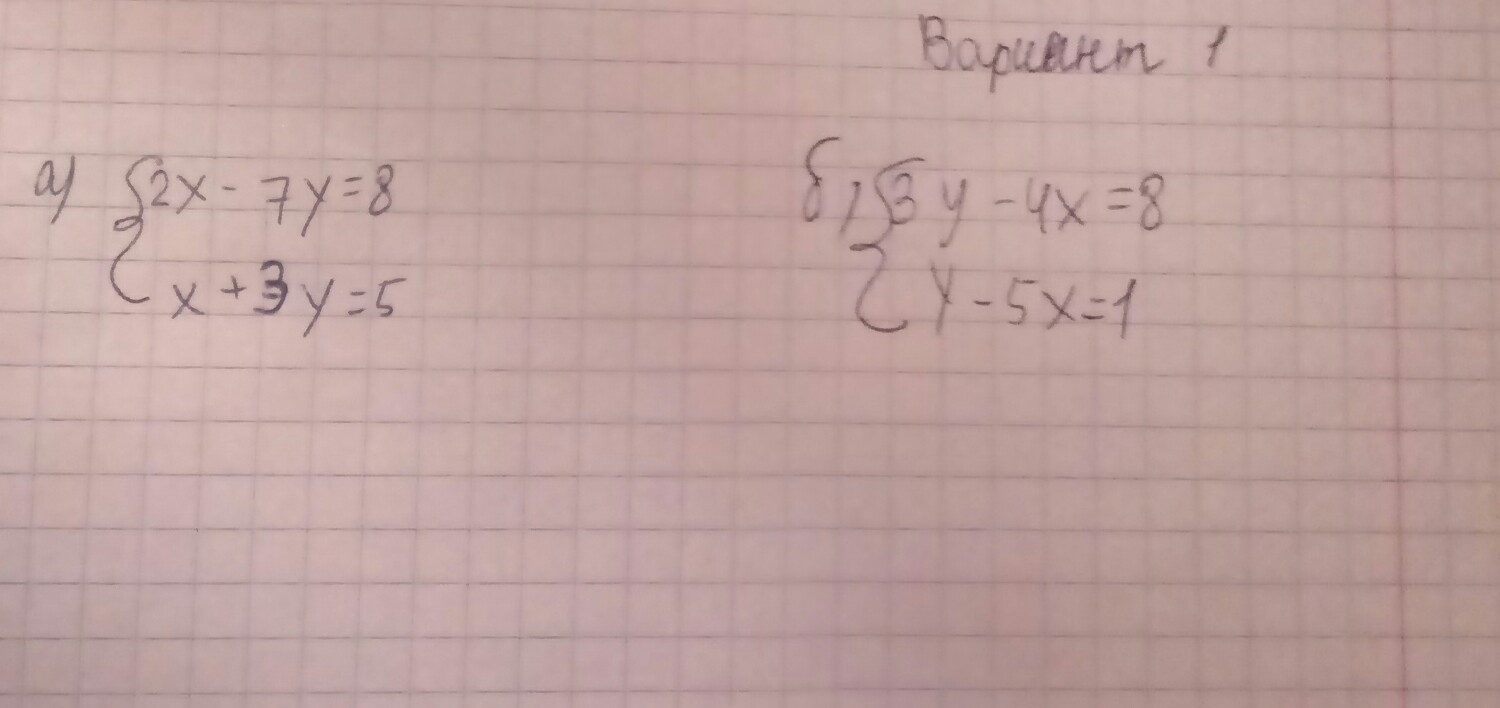 Вариант 1
а) {2x - 7y = 8
x + 3y = 5
б) {3y - 4x = 8
y - 5x = 1